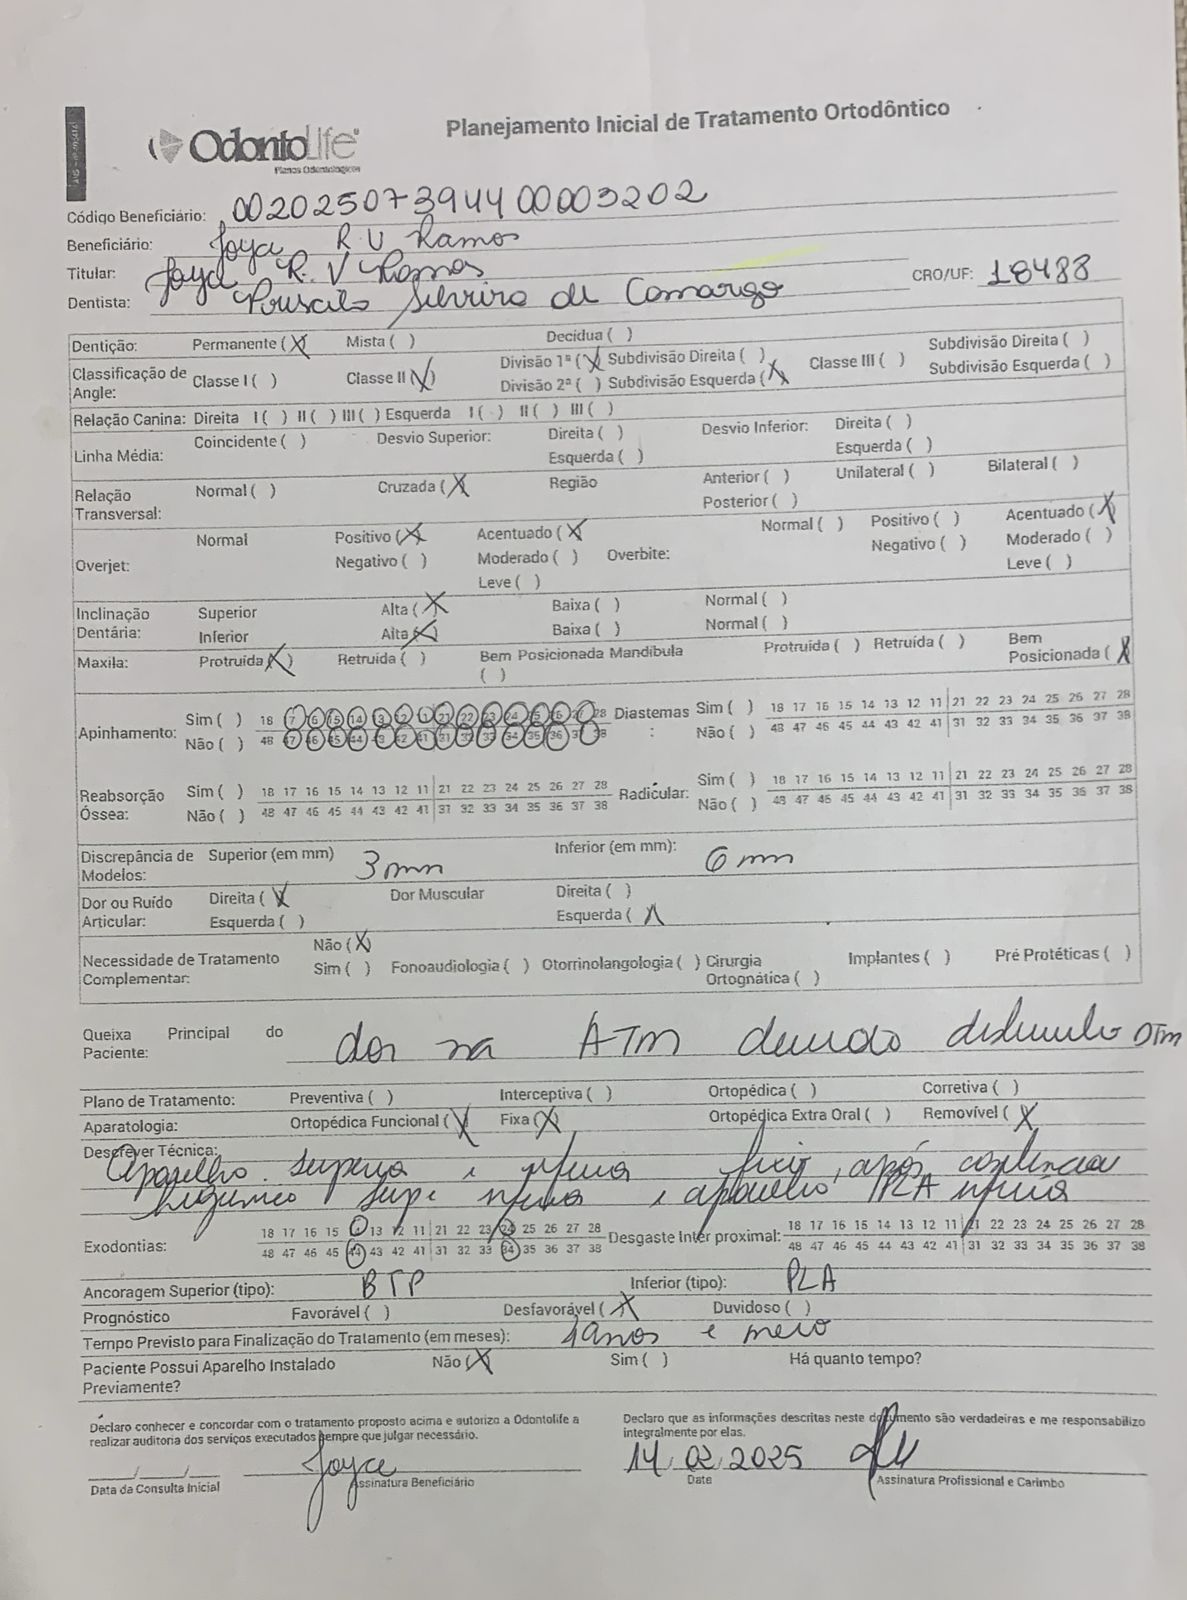 Planejamento Inicial de Tratamento Ortodôntico
OdontoLife
Planos Odontológicos
Código Beneficiário: 00202507394400003202
Beneficiário: Joyce R. V. Ramos
Titular: Joyce R. V Ramos
Dentista: de Camargo CRO/UF: 18488
Dentição: Permanente (X) Mista ( ) Decídua ( )
Classificação de Angle: Classe I ( ) Classe II (X) Divisão 1ª (X) Subdivisão Direita ( ) Classe III ( ) Subdivisão Direita ( )
Divisão 2ª ( ) Subdivisão Esquerda (X) Subdivisão Esquerda ( )
Relação Canina: Direita I ( ) II ( ) III ( ) Esquerda I ( ) II ( ) III ( )
Linha Média: Coincidente ( ) Desvio Superior: Direita ( ) Desvio Inferior: Direita ( )
Esquerda ( ) Esquerda ( )
Relação Transversal: Normal ( ) Cruzada (X) Região Anterior ( ) Unilateral ( ) Bilateral ( )
Posterior ( )
Overjet: Normal Positivo (X) Acentuado (X) Overbite: Normal ( ) Positivo ( ) Acentuado (X)
Negativo ( ) Moderado ( ) Negativo ( ) Moderado ( )
Leve ( ) Leve ( )
Inclinação Dentária: Superior Alta (X) Baixa ( ) Normal ( )
Inferior Alta (X) Baixa ( ) Normal ( )
Maxila: Protruida (X) Retruída ( ) Bem Posicionada ( ) Mandíbula Protruída ( ) Retruída ( ) Bem Posicionada (X)
Apinhamento: Sim ( ) 18 17 16 15 14 13 12 11 21 22 23 24 25 26 27 28 Diastemas : Sim ( ) 18 17 16 15 14 13 12 11 21 22 23 24 25 26 27 28
Não ( ) 48 47 46 45 44 43 42 41 31 32 33 34 35 36 37 38 Não ( ) 48 47 46 45 44 43 42 41 31 32 33 34 35 36 37 38
Reabsorção Óssea: Sim ( ) 18 17 16 15 14 13 12 11 21 22 23 24 25 26 27 28 Radicular: Sim ( ) 18 17 16 15 14 13 12 11 21 22 23 24 25 26 27 28
Não ( ) 48 47 46 45 44 43 42 41 31 32 33 34 35 36 37 38 Não ( ) 48 47 46 45 44 43 42 41 31 32 33 34 35 36 37 38
Discrepância de Modelos: Superior (em mm) 3mm Inferior (em mm): 6 mm
Dor ou Ruído Articular: Direita (X) Dor Muscular Direita ( )
Esquerda ( ) Esquerda (X)
Necessidade de Tratamento Complementar: Não (X)
Sim ( ) Fonoaudiologia ( ) Otorrinolangologia ( ) Cirurgia Ortognática ( ) Implantes ( ) Pré Protéticas ( )
Queixa Principal do Paciente: dor na ATM DTM
Plano de Tratamento: Preventiva ( ) Interceptiva ( ) Ortopédica ( ) Corretiva ( )
Aparatologia: Ortopédica Funcional (X) Fixa (X) Ortopédica Extra Oral ( ) Removível (X)
Descrever Técnica:
Aparelho superior e inferior fixo, após
e aparelho PLA inferior
Exodontias: 18 17 16 15 14 13 12 11 21 22 23 24 25 26 27 28 Desgaste Inter proximal: 18 17 16 15 14 13 12 11 21 22 23 24 25 26 27 28
48 47 46 45 44 43 42 41 31 32 33 34 35 36 37 38 48 47 46 45 44 43 42 41 31 32 33 34 35 36 37 38
Ancoragem Superior (tipo): BTP Inferior (tipo): PLA
Prognóstico Favorável ( ) Desfavorável (X) Duvidoso ( )
Tempo Previsto para Finalização do Tratamento (em meses): anos e meio
Paciente Possui Aparelho Instalado Previamente? Não (X) Sim ( ) Há quanto tempo?
Declaro conhecer e concordar com o tratamento proposto acima e autorizo a Odontolife a realizar auditoria dos serviços executados sempre que julgar necessário.
Declaro que as informações descritas neste documento são verdadeiras e me responsabilizo integralmente por elas.
Joyce 14.02.2025
Data da Consulta Inicial Assinatura Beneficiário Date Assinatura Profissional e Carimbo